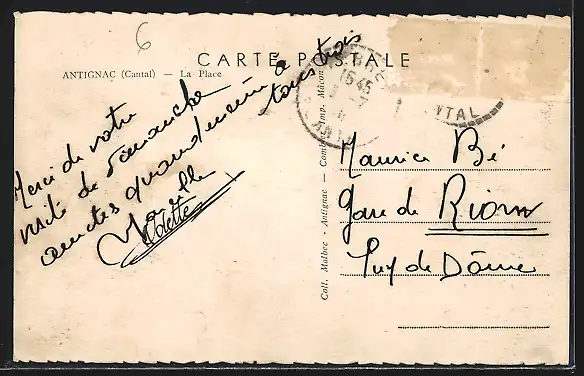 6
CARTE POSTALE
ANTIGNAC (Cantal) — La Place
15 45
NTAL
Merci de votre
visite de dimanche
à tous trois
Odette
Maurice Bé
Gare de Riom
Puy de Dôme
Coll. Malbec - Antignac — Combier Imp. Mâcon